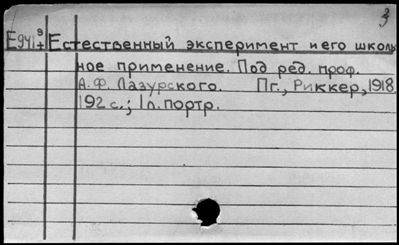 3
Е941 9 + Естественный эксперимент и его школь
ное применение. Под ред. проф.
А.Ф. Лазурского. Пг., Риккер, 1918.
192 с.; 1 л. портр.